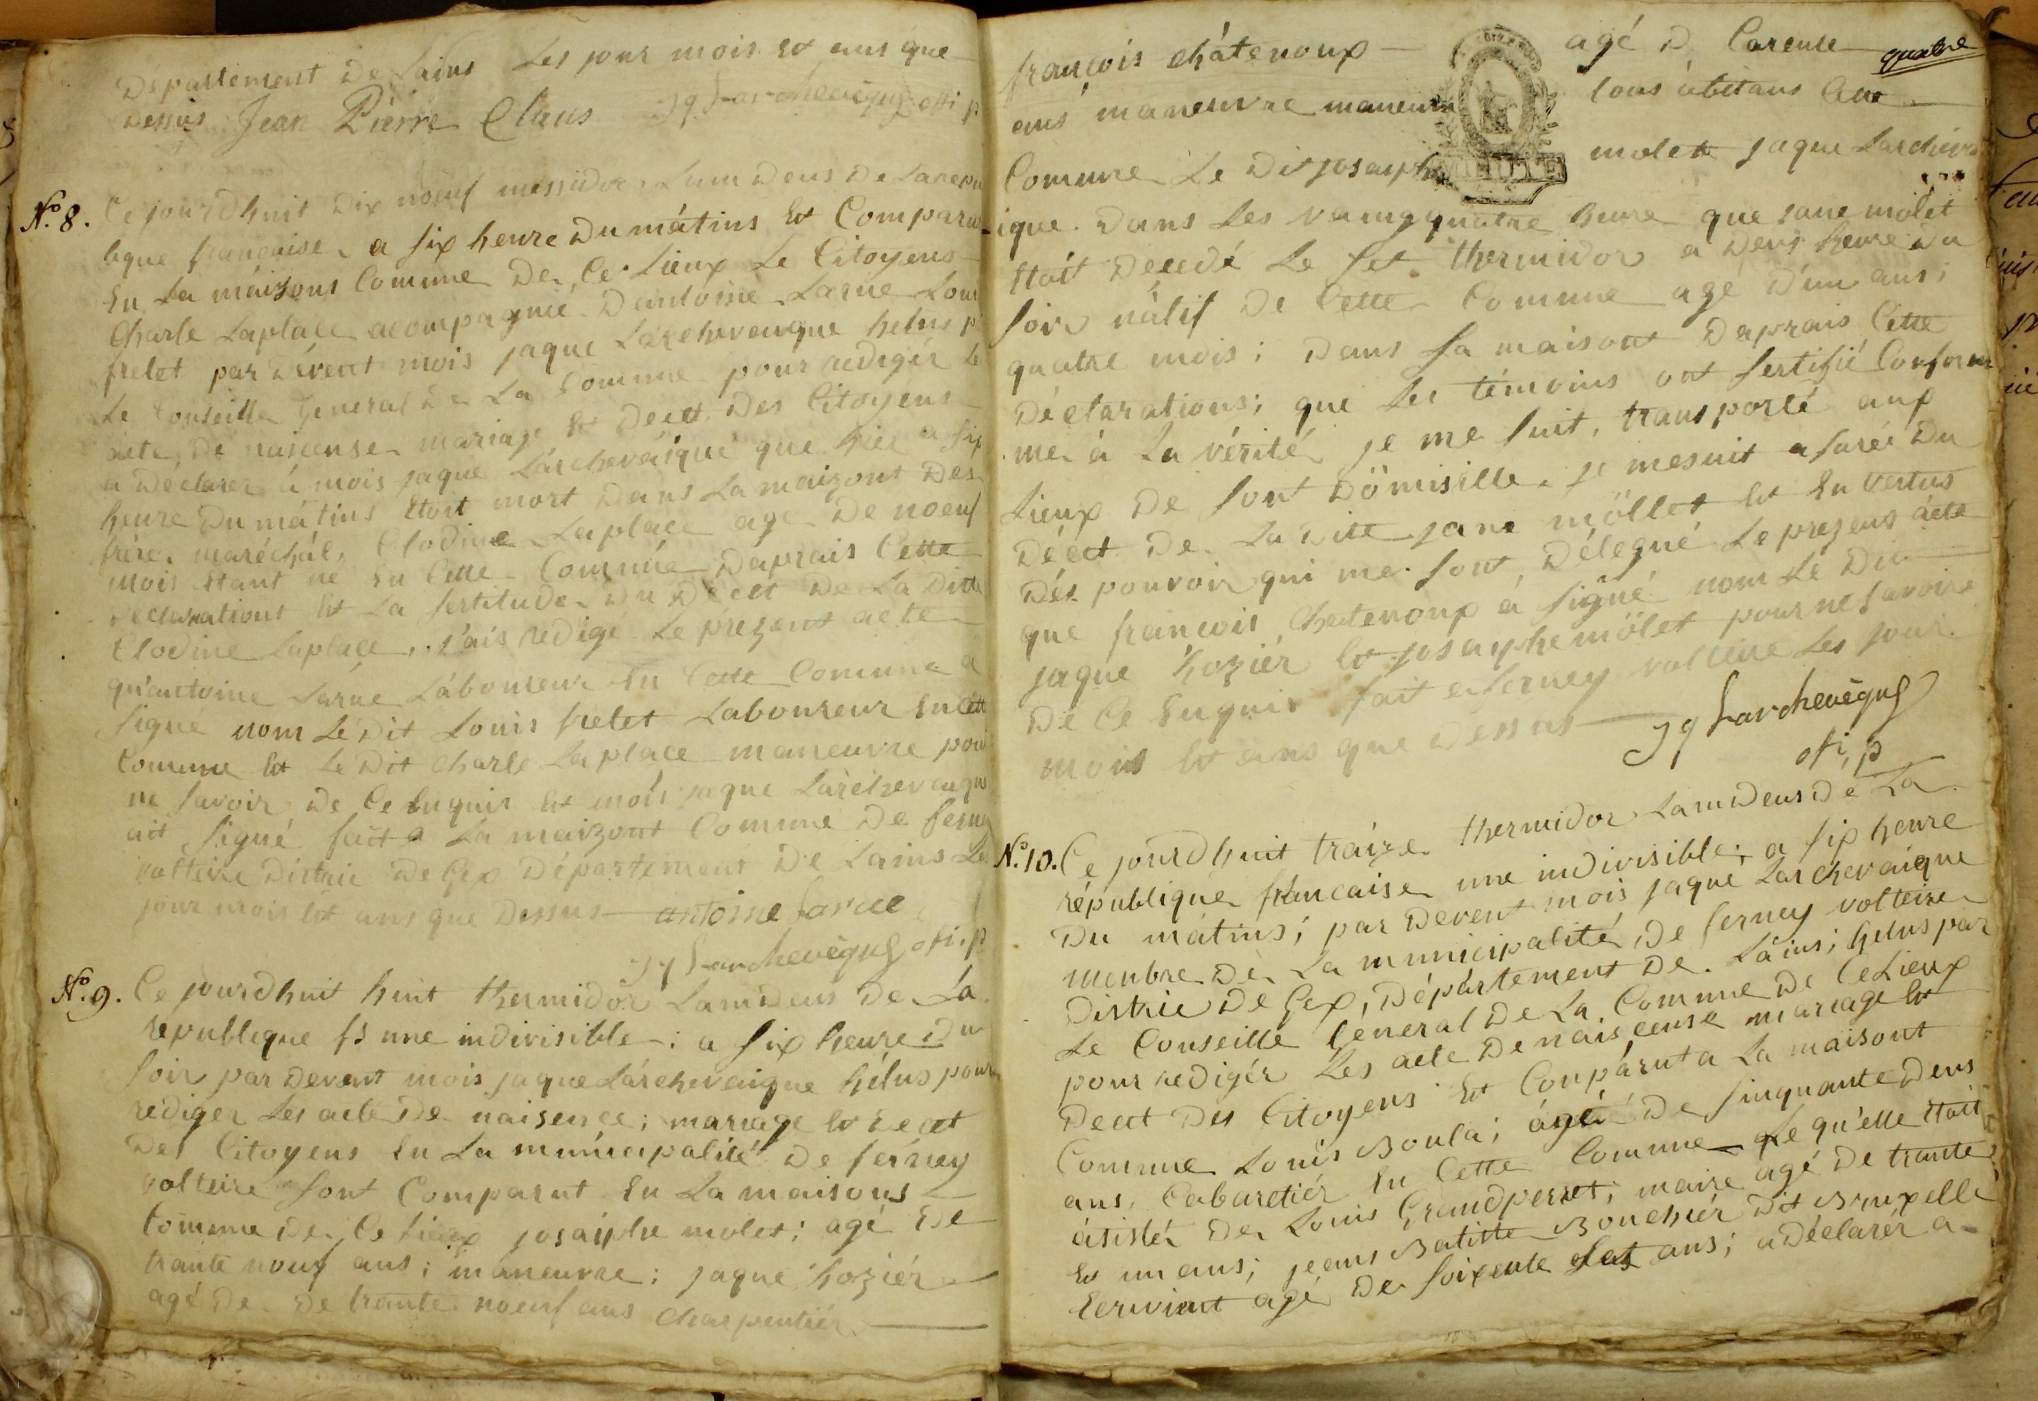 Departement De Lains Les jour mois et ans que
Dessus Jean Pierre Claus jq Larchevêque offi, p
N.o 8. Ce jourdhuit Dix nœuf messidor Lam Deus De Larepu
blique française a six heure Du mátins Et Comparu
En La máizons Comune De Ce Lieux Le Citoyens
Charle Laplace acompagnié Dantoine Larue Loui
frelet par Dévent mois jaque Larchevaique helus p
Le Conseille General De La Comune pour redigér Le
acte De naisense mariage Et Deect Des Citoyens
a Déclarer á mois jaque Lárchevaique que hier a six
heure Du mátins Etoit mort Dans La maizont Des
frére maréchál, Clodine Laplace agé De noeuf
mois Etant né En Cette Comune Daprais Cette
Declarationt Et La sertitude Du Décet De La Ditte
Clodine Laplace, j'ais redigé Le prezent acte
qu'antoine Larue Laboureur En Cette Comune a
signe nom Le Dit Louis frelet Laboureur En Cett
Comune Et Le Dit Charle Laplace maneuvre pour
ne savoir De Ce Enquis Et mois jaque Larchevaique
ait signé fait a La maizont Comune De ferney
volteire Distric De Gex Département De Lains Le
jour mois Et ans que Dessus antoine Larue
jq Larchevêque ofi, p
N.o 9. Ce jourdhuit huit thermidor Lam deus De La
republique fs une indivisible; a six heure Du
soir par Devent mois jaque Lárchevaique hélus pour
rediger Les acte De naisence; mariage Et Decet
Des Citoyens En La municipalité De férney
volteire sont Comparut En La maisons
Comune De Ce Lieux josaiphe molet; agé De
trante neuf ans; maneuvre; jaque hoziér
agé De De trante noeuf ans Charpentiér
françois châtenoux agé D Carente quatre
ans maneuvre maneuvre tous abitans Cette
Comune Le Dit josaiphe molet jaque Larchéva
ique Dans Les vaing quatre heure que Jane molet
Etáit Décedé Le set thermidor a Deus heure Du
soir nátif De Cette Comune agé D'un ans;
quatre mois; Dans sa maisont Daprais Cette
Déclarations; que Les témoins ont sertifié Confor
me à La vérité je me suit, transporté aux
Lieux De sont Domisille je mesuit asurée Du
Décet De La Dite jane möllet Et En vertus
Dés pouvoir qui me sont Délegué Le prezens acte
que françois Chatenoux a signé nom Le Dit
jaque hoziér Et josayphe mölet pour ne savoire
De Ce Enquis fait a ferney volteire Les jour
mois Et ans que Dessus
jq Larchevêque
ofi, p
N.o 10. Ce jourdhuit traize thermidor Lam Deus Dé La
république française une indivisible; a six heure
Du mátins; par Devent mois jaque Larchevaique
menbre De La municipalité De ferney volteire
Distric De Gex, Département De Láins; helus par
Le Conseille Géneral De La Comune De Ce Lieux
pour redigér Les acte De naiscense mariage Et
Decet Des Citoyens Et Conpárut a La maisont
Comune Louis Boula; ágé De sinquante Deus
ans, Cabaretiér En Cette Comune Le qu'elle Etait
ásisté De Louis Grandperret; maire agé De trante
Et un ans; jeans Batiste Bouchiér Dit Bruxelle
Ecrivint agé De soixente set ans; a Déclarér a